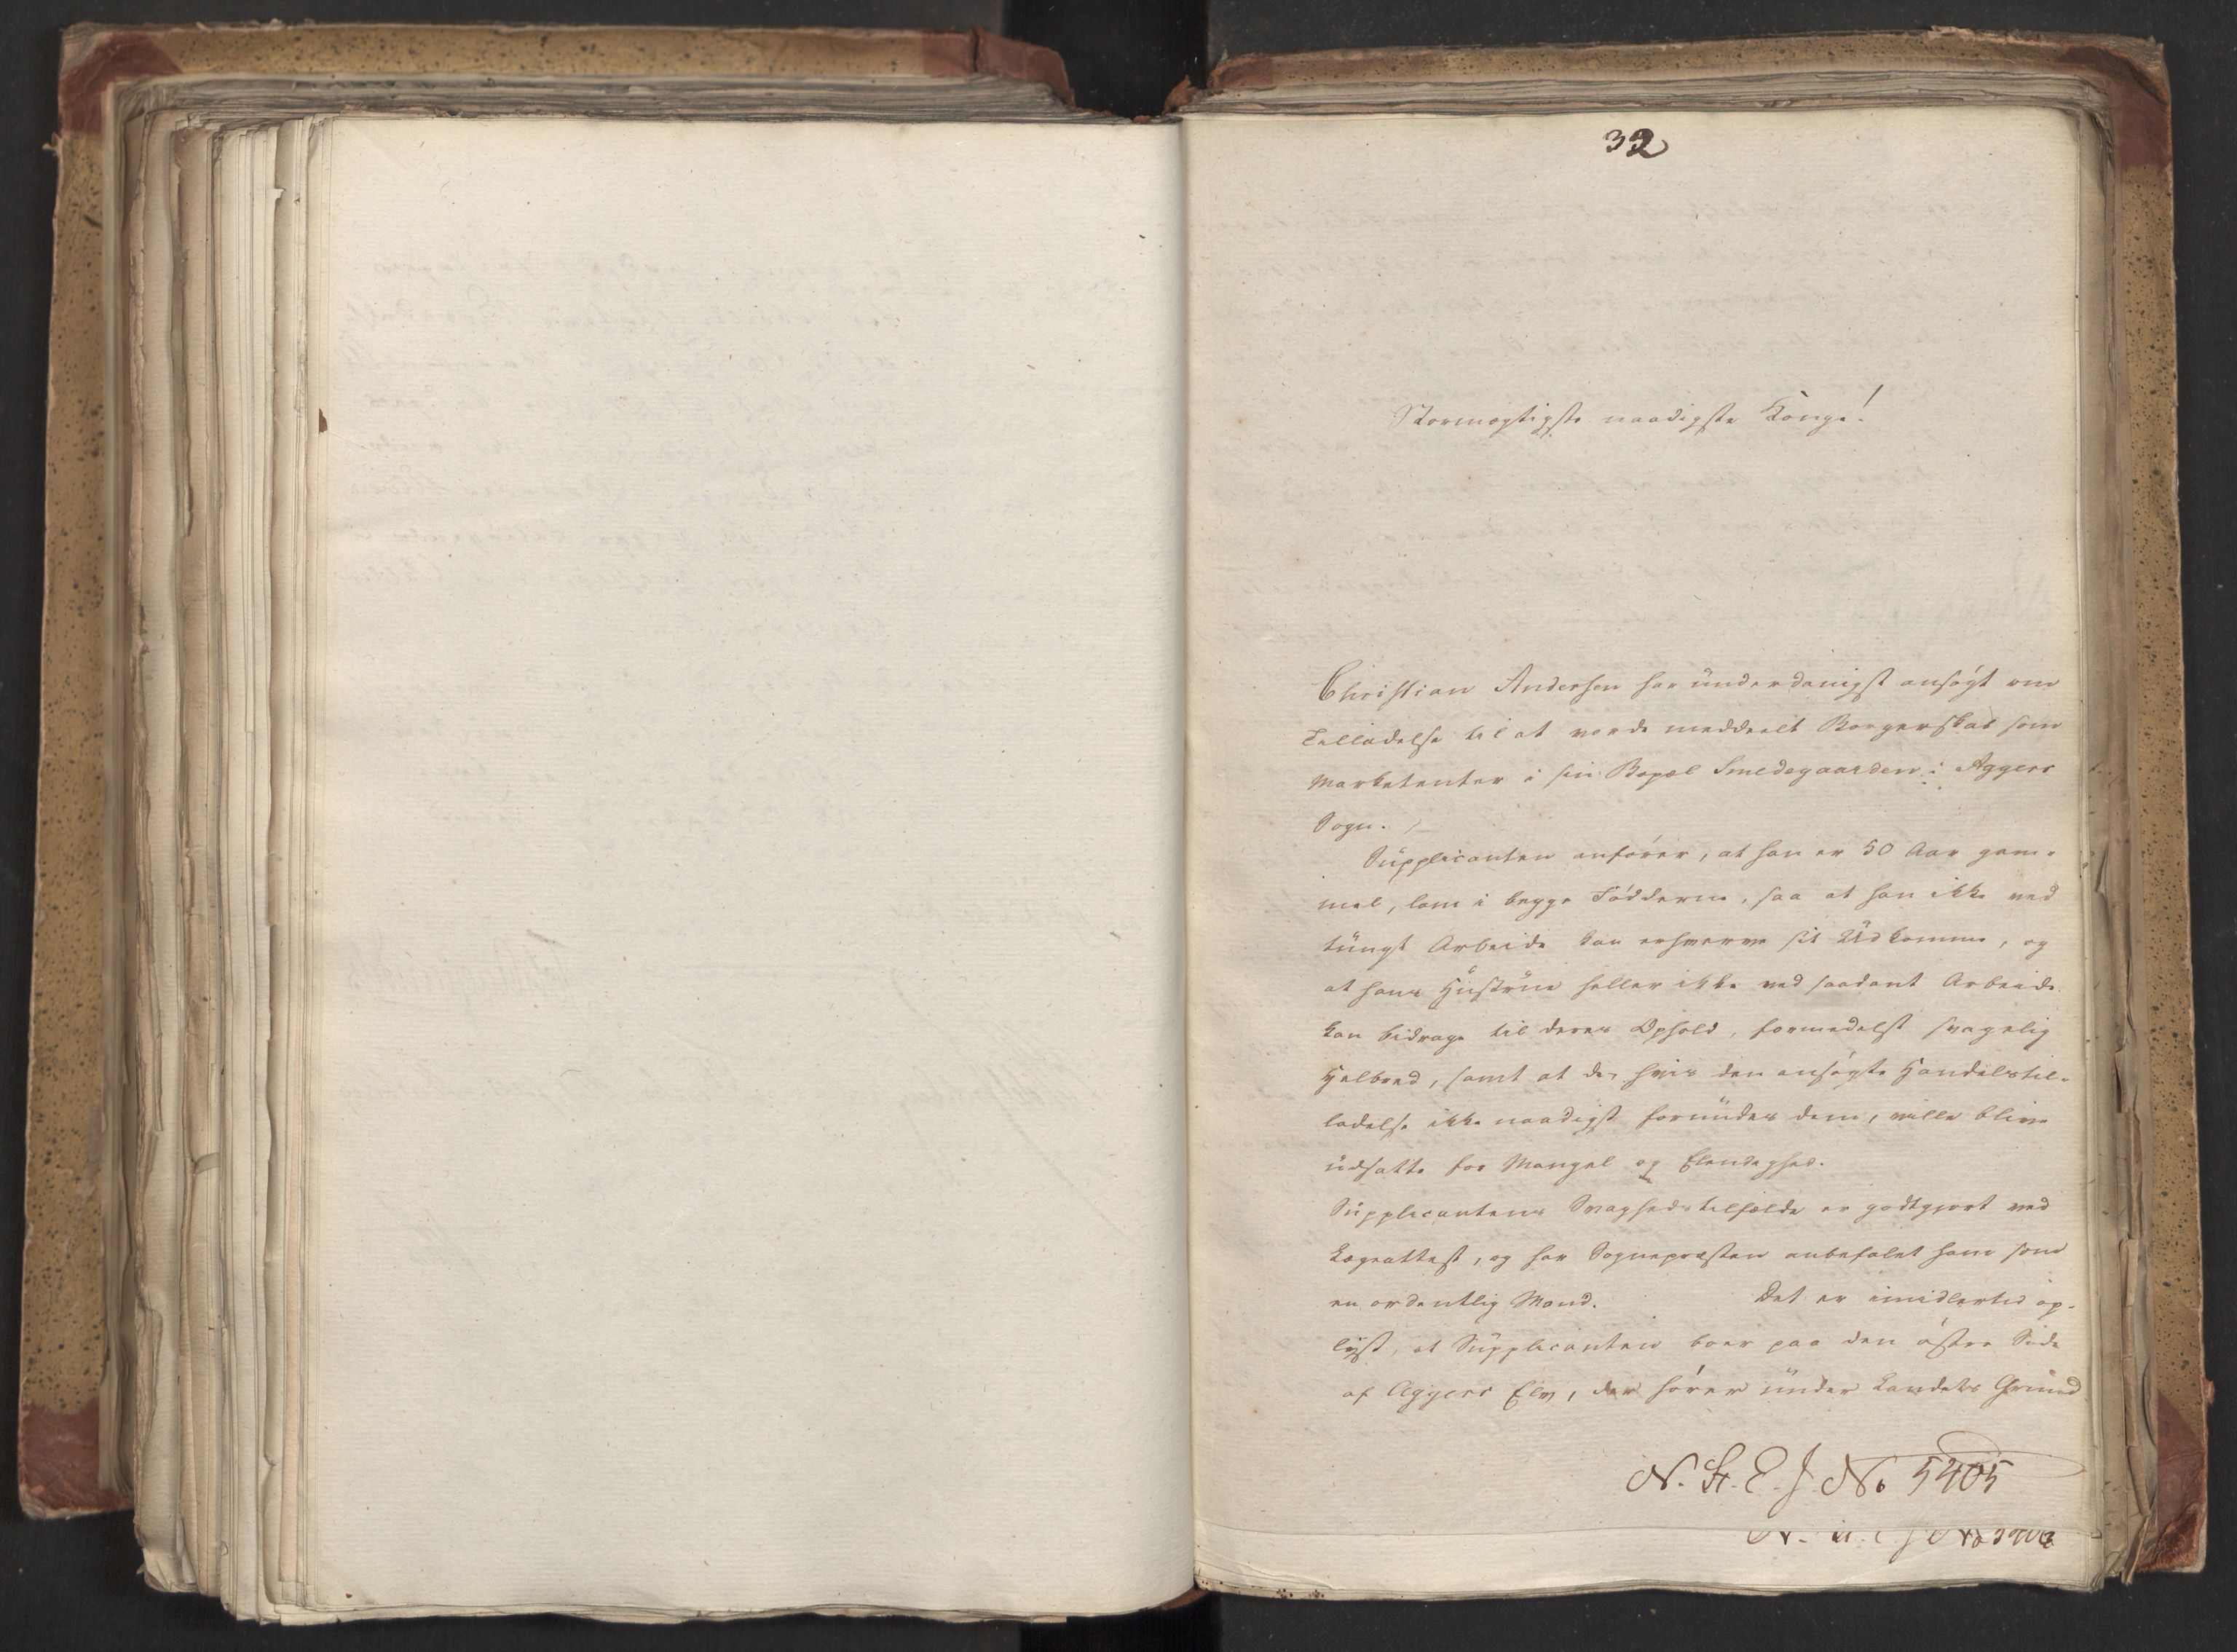 32
Stormægtigste naadigste Konge!
Christian Andersen har underdanigst ansøgt om
Tilladelse til at vorde meddeelt Borgerskab som
Marketenter i sin Bopæl Smedegaarden i Aggers
Sogn.
Supplicanten anfører, at han er 50 Aar gam-
mel, lam i begge Fødderne, saa at han ikke ved
tungt Arbeide kan erhverve sit Udkomme, og
at hans Hustrue heller ikke ved saadant Arbeide
kan bidrage til deres Ophold, formedelst svagelig
Helbred, samt at de, hvis den ansøgte Handelstil-
ladelse ikke naadigst forundes dem, ville blive
udsatte for Mangel og Elendighed.
Supplicantens Svaghedstilfælde er godtgjort ved
Lægeattest, og har Sognepræsten anbefalet ham som
en ordentlig Mand. Det er imidlertid op-
lyst, at Supplicanten boer paa den østre Side
af Aggers Elv, der hører under Landets Grund
N. St. E. J. No 5405